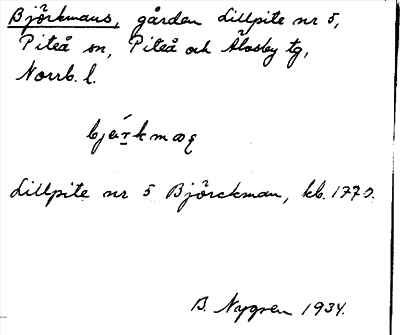 Björkmans, gården Lillpite nr 5,
Piteå sn, Piteå och Älvsby tg,
Norrb. l.
Lillpite nr 5 Björckman, kb. 1770.
B. Nygren 1934.